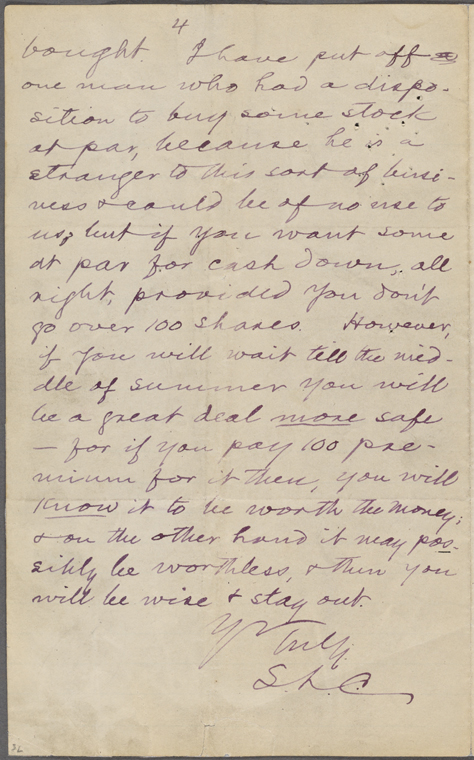 4
bought. I have put off
one man who had a dispo-
sition to buy some stock
at par, because he is a
stranger to this sort of busi-
ness & could be of no use to
us; but if you want some
at par for cash down, all
right, provided you don't
go over 100 shares. However,
if you will wait till the mid-
dle of summer you will
be a great deal more safe
— for if you pay 100 pre-
mium for it then, you will
know it to be worth the money;
& on the other hand it may pos-
sibly be worthless, & then you
will be wise & stay out.
Yr Truly
S. L. C.
32